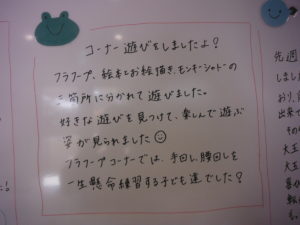 コーナー遊びをしましたよ?
フラフープ、絵本とお絵描き、モンキーシャドーの
三箇所に分かれて遊びました。
好きな遊びを見つけて、楽しんで遊ぶ
姿が見られました
フラフープコーナーでは、手回し、腰回しを
一生懸命練習する子ども達でした?
先週
しました
おり、
出来て
その
大玉
大玉